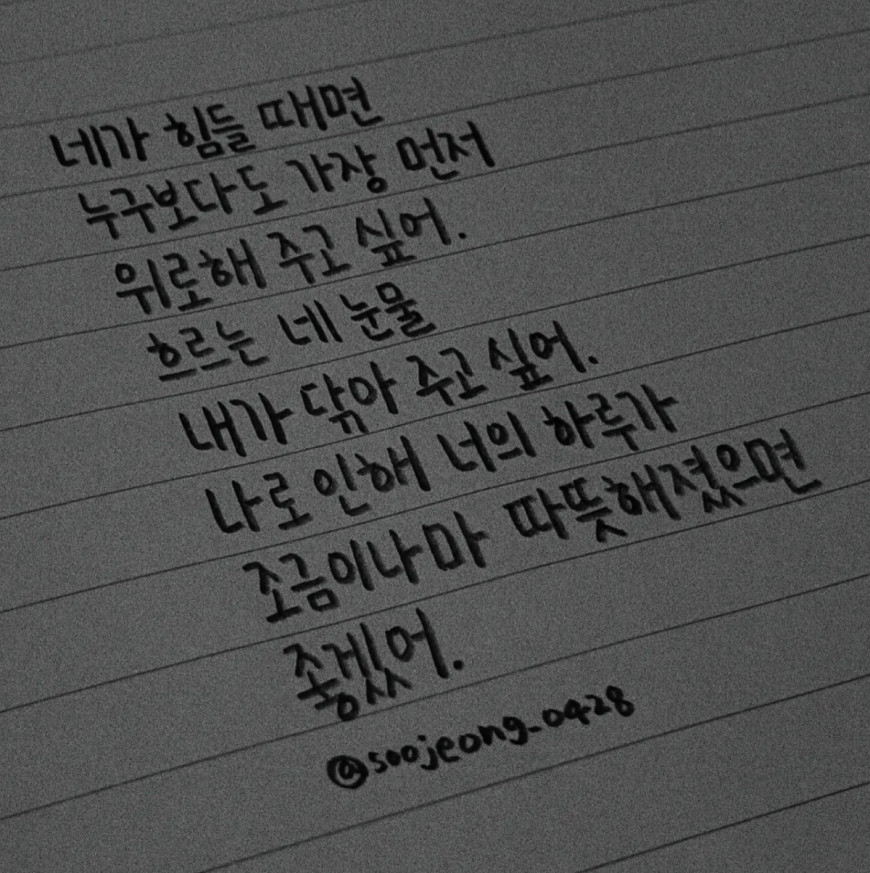 네가 힘들 때면
누구보다도 가장 먼저
위로해 주고 싶어.
흐르는 네 눈물
내가 닦아 주고 싶어.
나로 인해 너의 하루가
조금이나마 따뜻해졌으면
좋겠어.
@soojeong_0428